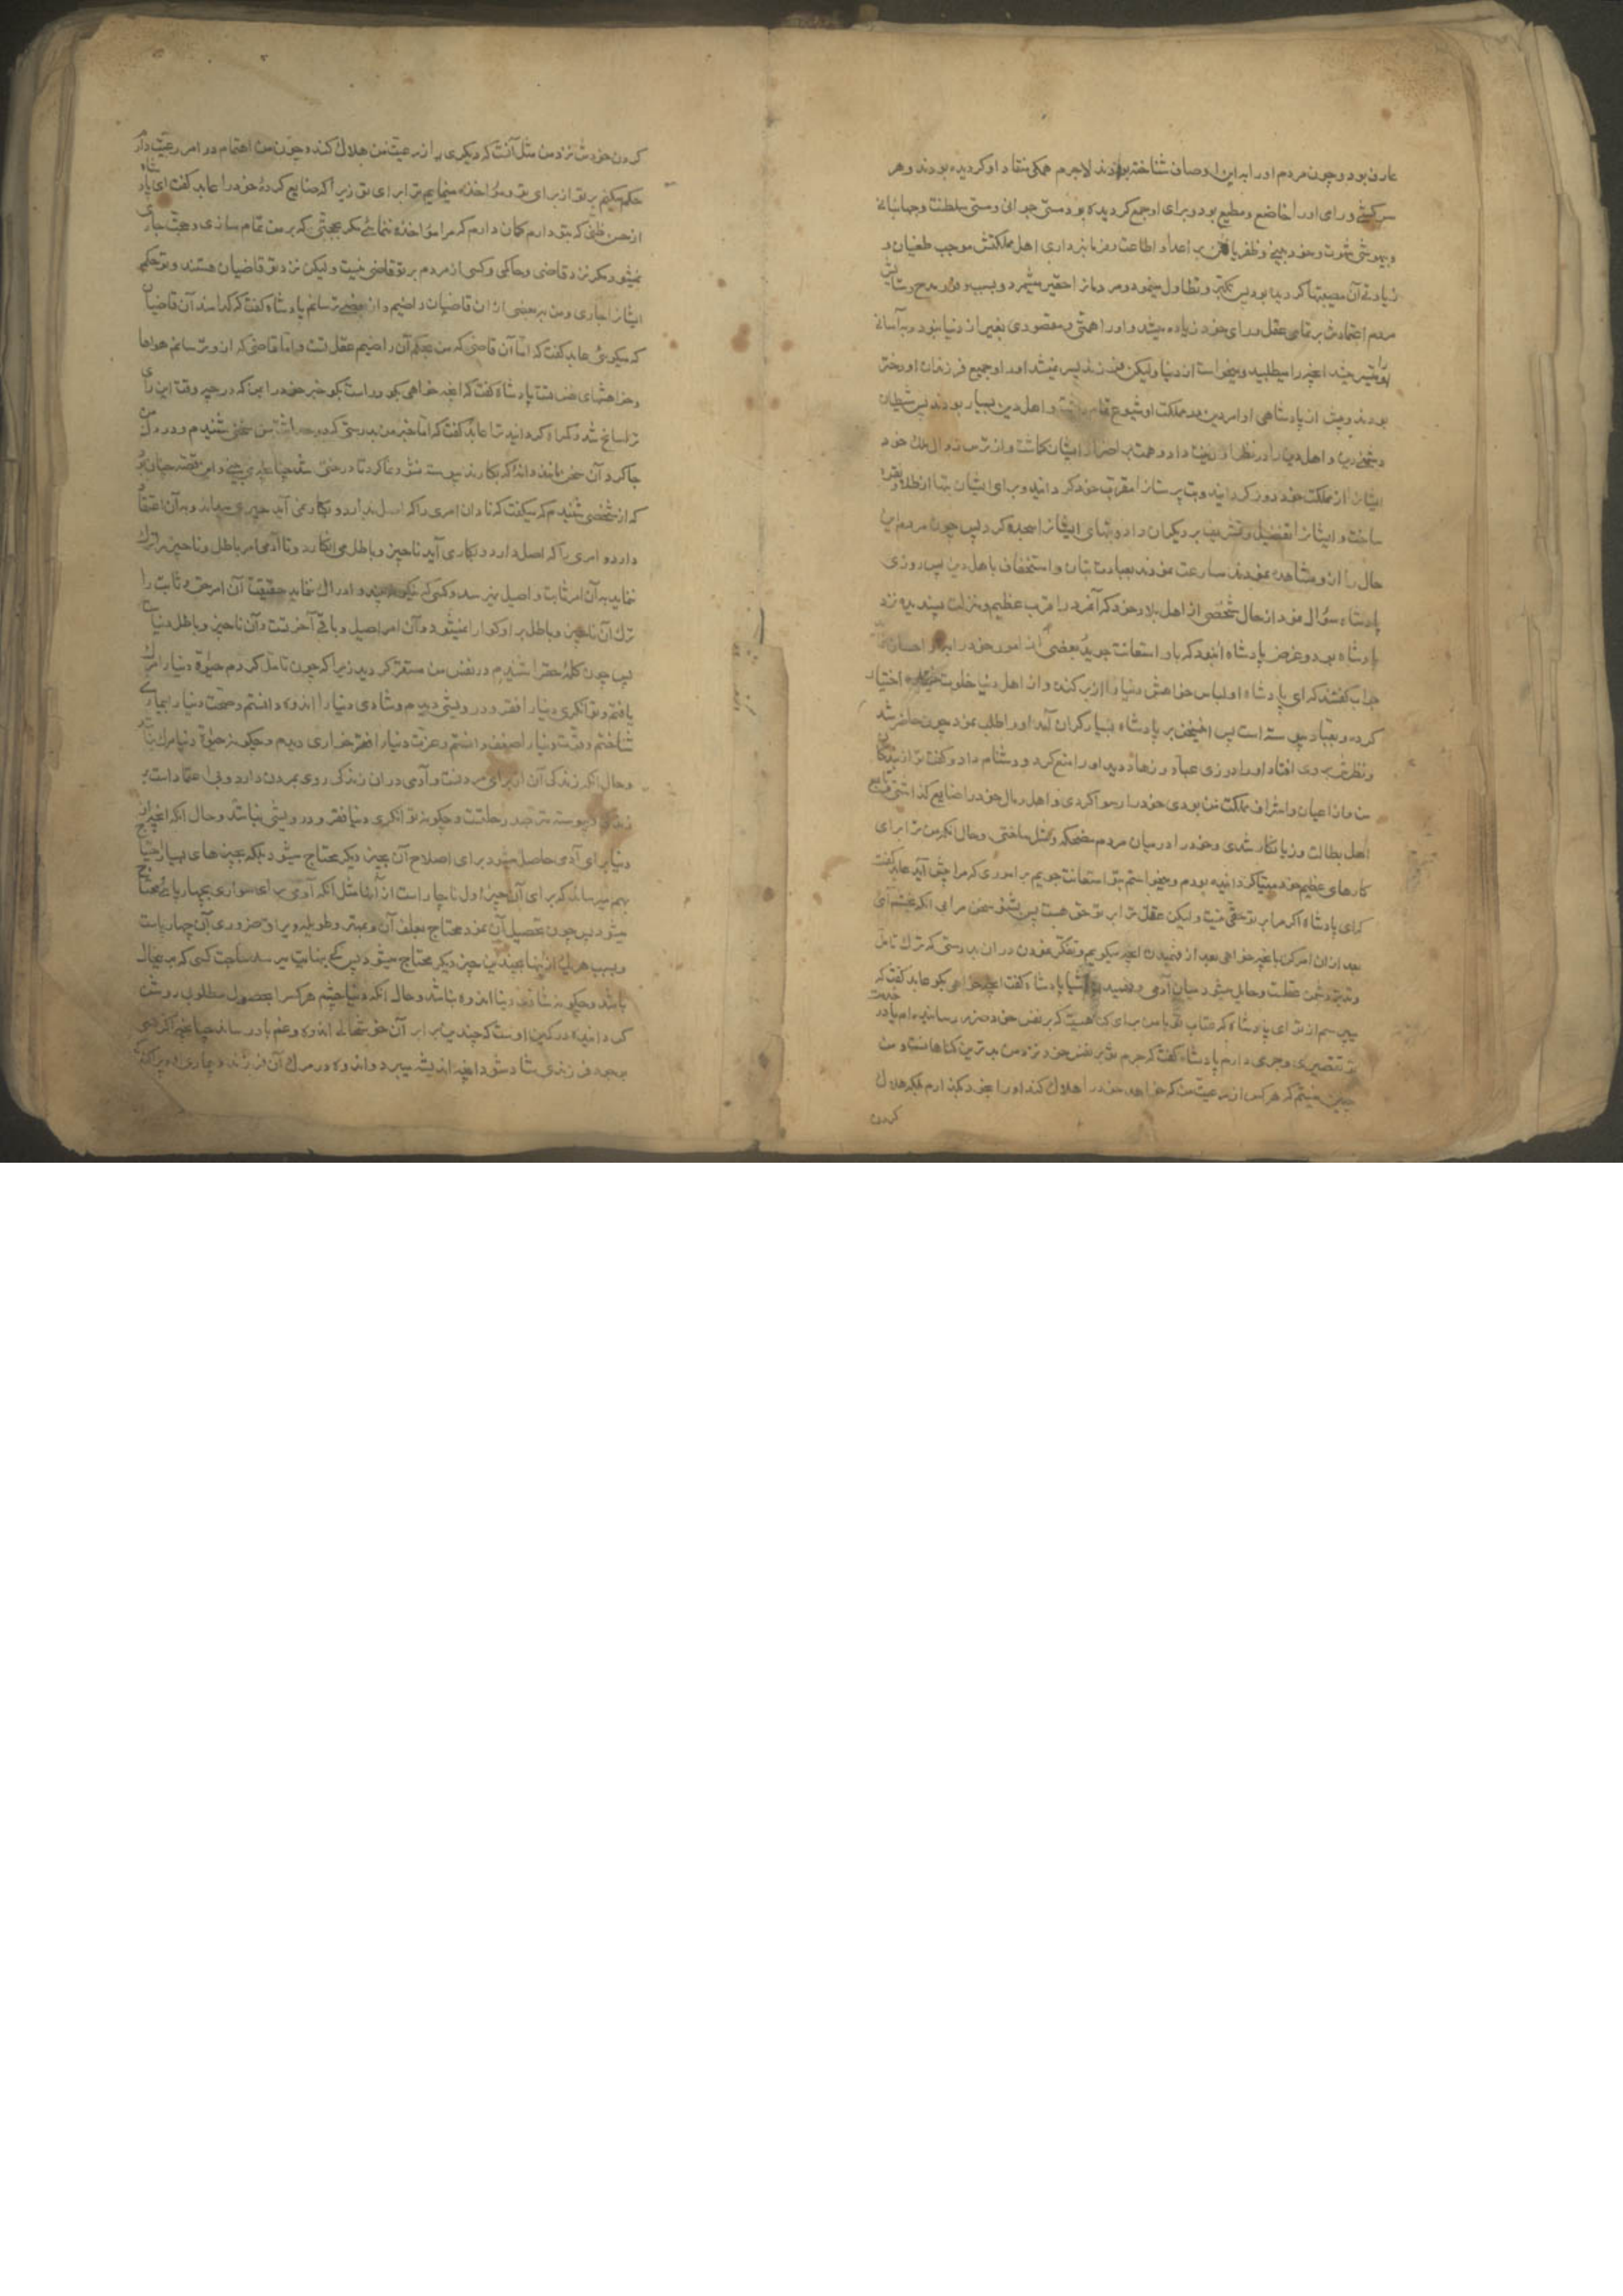 عارف بود و چون مردم او را به این اوصاف شناخته بودند لاجرم همگی منقاد او گردیده بودند و هر
سرکشی و رای او را خاضع و مطیع بود و برای او جمع گردیده بود مستی جوانی و مستی سلطنت و جهانبانی
و بیهوشی شهوت و خودبینی و ظفر یافتن بر اعدا و اطاعت و فرمانبرداری اهل مملکتش موجب طغیان و
زیادتی آن مصیبتها گردیده بود پس تکبر و تطاول مینمود و مردمانرا حقیر میشمرد و بسبب وفور مدح و ستایش
مردم اعتمادش بر تمامی عقل و رای خود زیاده میشد و او را همتی و مقصودی بغیر از دنیا نبود و به آسانی
میسر میشد آنچه را میطلبید و میخواست از دنیا ولیکن فرزند پسر نمیشد او را و جمیع فرزندان او دختر
بودند و پیش از پادشاهی او امر دین در مملکت او شیوع تمام داشت و اهل دین بسیار بودند پس شیطان
دشمنی دین و اهل دین را در نظر او زینت داد و همت بر اضرار ایشان گماشت و از ترس زوال ملک خود
ایشانرا از مملکت خود دور گردانید و بت پرستانرا مقرب خود گردانید و برای ایشان بتها از طلا و نقره
ساخت و ایشانرا تفضیل و تشریف بر دیگران داد و بتهای ایشانرا سجده کرد پس چون مردم این
حال را از او مشاهده نمودند مسارعت نمودند بعبادت بتان و استخفاف باهل دین پس روزی
پادشاه سؤال نمود از حال شخصی از اهل بلاد خود که آنمرد را قرب عظیم و منزلت پسندیده نزد
پادشاه بود و غرض پادشاه آنبود که باو استعانت جوید بعضی از امور خود را
جواب گفتند که ای پادشاه او لباس خواهش دنیا را از بر کنده و از اهل دنیا خلوت اختیار
کرده و بعباد پیوسته است پس این سخن بر پادشاه بسیار گران آمد او را طلب نمود چون حاضر شد
و نظرش بر وی افتاد او را در زی عباد و زهاد دید او را منع کرد و دشنام داد و گفت تو از بندگان
من و از اعیان و اشراف مملکت من بودی خود را رسوا کردی و اهل و مال خود را ضایع گذاشتی و تابع
اهل بطالت و زیانکار شدی و خود را در میان مردم مضحکه و مثل ساختی و حال آنکه من ترا برای
کارهای عظیم خود مهیا گردانیده بودم و میخواستم بتو استعانت جویم بر اموری که مرا پیش آید عابد گفت
که ای پادشاه اگر مرا بر تو حقی نیست ولیکن عقل ترا بر تو حق هست پس بشنو سخن مرا بی آنکه بخشم آئی
بعد از آن امر کن بآنچه خواهی بعد از فهمیدن آنچه میگویم و تفکر نمودن در آن بدرستی که ترک تامل
و تدبر دشمن عقلست و حایل میشود میان آدمی و فهمیدن اشیا پادشاه گفت آنچه خواهی بگو عابد گفت که
میپرسم از تو ای پادشاه که عتاب تو با من برای گناهیست که بر نفس خود ضرر رسانیده ام یا در خدمت
تو تقصیری و جرمی دارم پادشاه گفت که جرم تو بر نفس خود نزد من بدترین گناهانست و من
چنین نیستم که هر کس از رعیت من که خواهد خود را هلاک کند او را بخود بگذارم بلکه هلاک
کردن
کردن خودش نزد من مثل آنست که دیگری را از رعیت من هلاک کند و چون من اهتمام در امر رعیت دارم
حکم میکنم بر تو از برای تو و مؤاخذه مینمایم ترا برای تو زیرا که ضایع کردهٔ خود را عابد گفت ای پادشاه
از حسن ظنی که بتو دارم گمان دارم که مرا مؤاخذه ننمائی مگر بحجتی که بر من تمام سازی و حجت جاری
نمیشود مگر نزد قاضی و حاکمی و کسی از مردم بر تو قاضی نیست ولیکن نزد تو قاضیان هستند و تو حکم
ایشانرا جاری و من ببعضی از آن قاضیان راضیم و از بعضی ترسانم پادشاه گفت که کدامند آن قاضیان
که میگوئی عابد گفت که اما آن قاضی که من بحکم آن راضیم عقل تست و اما قاضی که از او ترسانم هواها
و خواهشهای نفس تست پادشاه گفت که آنچه خواهی بگو و راست بگو خبر خود را بمن که در چه وقت این رای
ترا سانح شد و که گمراه گردانید ترا عابد گفت که اما خبر من بدرستی که در حداثت سن سخنی شنیدم و در دل من
جا کرد و آن سخن مانند دانه که بکارند پیوسته نشو و نما کرد تا درختی شد چنانچه می بینی و این قصه چنان بود
که از شخصی شنیدم که میگفت که نادان امری را که اصل ندارد و بکار نمی آید چیزی میداند و به آن اعتقاد
دارد و امری را که اصل دارد و بکار می آید ناچیز و باطل می انگارد و تا آدمی امر باطل و ناچیز را ترک
ننماید به آن امر ثابت و اصیل نمیرسد و کسی که نیکو نبیند و ادراک ننماید حقیقت آن امر حق و ثابت را
ترک آن ناچیز و باطل بر او گوارا نمیشود و آن امر اصیل و باقی آخرتست و آن ناچیز و باطل دنیاست
پس چون کلمهٔ حقرا شنیدم در نفس من مستقر گردید زیرا که چون تامل کردم حیوة دنیا را مرگ
یافتم و توانگری دنیا را فقر و درویشی دیدم و شادی دنیا را اندوه دانستم و صحت دنیا را بیماری
شناختم و قوت دنیا را ضعف دانستم و عزت دنیا را خواری دیدم و چگونه حیوة دنیا مرگ نباشد
و حال آنکه زندگی آن از برای مردنست و آدمی در آن زندگی روی بمردن دارد و بی اعتماد است بر
زندگی و پیوسته مترصد رحلتست و چگونه توانگری دنیا فقر و درویشی نباشد و حال آنکه آنچه از
دنیا برای آدمی حاصل میشود برای اصلاح آن بچیز دیگر محتاج میشود بلکه بچیزهای بسیار احتیاج
بهم میرساند که برای آن چیز اول ناچار است از آنها مثل آنکه آدمی برای سواری بچهارپائی محتاج
میشود پس چون تحصیل آن نمود محتاج بعلف آن و مهتر و طویله و یراق ضروری آن چهارپاست
و بسبب هر یک از اینها بچندین چیز دیگر محتاج میشود پس کی بنهایت میرسد حاجت کسی که بدینحال
باشد و چگونه شادی دنیا اندوه نباشد و حال آنکه دنیا چشم هر کسرا بحصول مطلوب روشن
گردانیده در کمین اوست که چندین برابر آن خوشحالی اندوه و غم باو رساند چنانچه اگر کسی
بوجود فرزندی شاد شود آنچه اندیشه میبرد و اندوه در مرگ آن فرزند و بیماری و پراکندگی